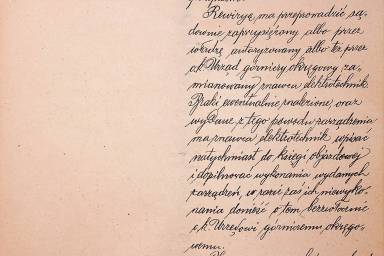 Rewizyę ma przeprowadzić są-
downie zaprzysiężony albo przez
władzę autoryzowany albo też przez
c.k. Urząd górniczy okręgowy za-
mianowany znawca elektrotechnik.
Braki ewentualnie znalezione, oraz
wydane z tego powodu zarządzenia
ma znawca elektrotechnik wpisać
natychmiast do księgi objazdowej
i dopilnować wykonania wydanych
zarządzeń, w razie zaś ich niewyko-
nania donieść o tem bezzwłocznie
c.k. Urzędowi górniczemu okręgo-
wemu.